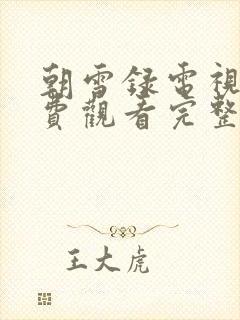 朝雪録電視
費觀看完整
王大虎